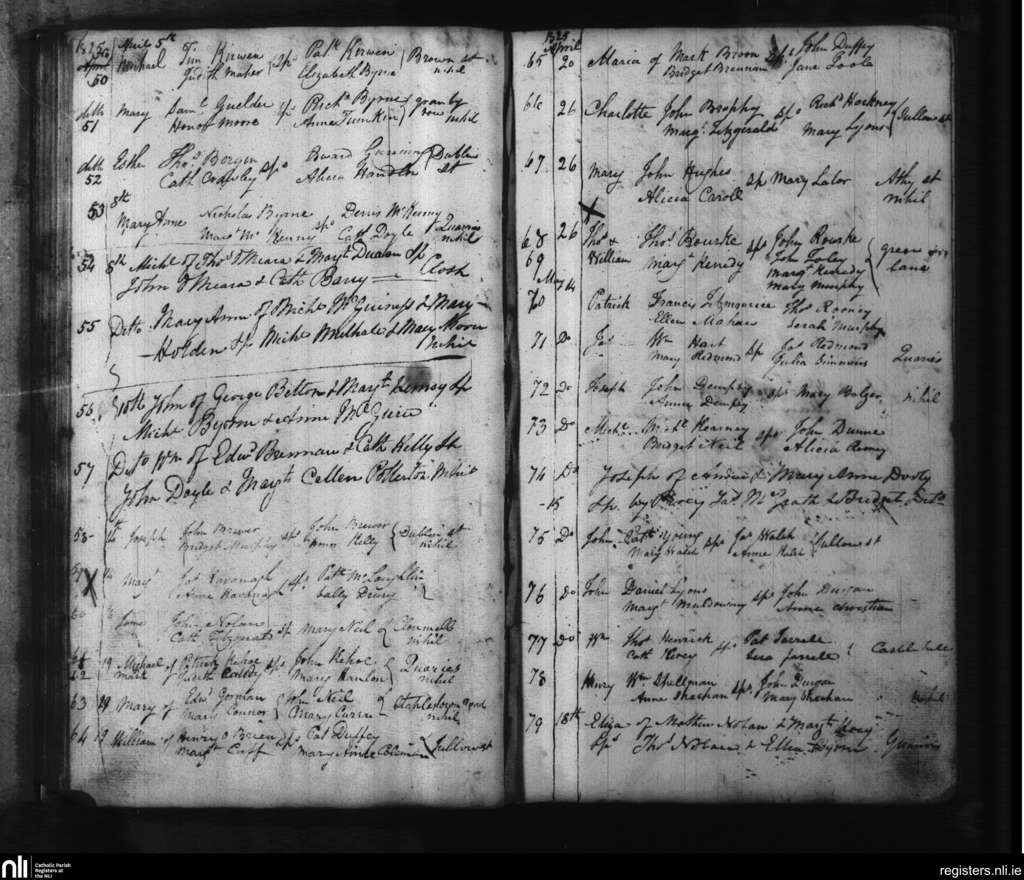 1825 April 5th
50 Michael Tim Kirwen Sps Patk Kirwen Brown st
Judith Maher Elizabeth Byrne nihil
ditto Mary Saml Guelder Sps Richd Byrne granby
51 Honor Moore Anne row nihil
ditto Esther Thos Bergen Sps Edward Dublin
52 Cath Crawley Alicia Hanlon St
53 8th
Mary Anne Nicholas Byrne Sps Denis McKenny Quaries
Margt McKenny Cath Doyle nihil
54 8th Michl of Thos O'Meara & Margt Sps
John O'Meara & Cath Barry Clash
55 Ditto Mary Anne of Michl McGuiness & Mary
Holden Sps Michl Mulhale & Mary Moore
nihil
56 10th John of George Betton & Margt Sp
Michl Byrne & Anne McGuire
57 Ditto Wm of Edwd Brennan & Cath Kelly Sps
John Doyle & Margt Cullen Pollerton nihil
58 Joseph John Brewer Sps John Brewer Dublin st
Bridget Murphy Honor Kelly nihil
59 Margt Jas Kavanagh Sps Patk McLaughlin
Anne Kavanagh Sally Drury
60 Jane John Nolan Sp Mary Neil of Clonmelsh
Cath Fitzgerald nihil
61 19 Michael of Patrick Kehoe Sps John Kehoe Quaries
62 Mark Judith Mary Hanlon nihil
63 19 Mary of Edwd Gorman John Neil of Staplestown Road
Mary Connor Mary Curran nihil
64 19 William of Henry O Brien Sps Pat Duffey Tullow st
Margt Mary Anne Coleman
1825
April
65 20 Maria of Mark Broom Sps John Duffey
Bridget Brennan Jane Toole
66 26 Charlotte John Brophy Sps Richd Hackney Tullow st
Margt Fitzgerald Mary Lyons
67 26 Mary John Hughes Sp Mary Lalor Athy st
Alicia Caroll nihil
68 26 Thos & Thos Rourke Sps John Rourke green
69 William Margt Kenedy John Foley lane
Margt Kennedy
Mary Murphy
May 14
70 Patrick Francis Fitzmaurice Thos Rooney
Ellen Maher Sarah Murphy
71 Do Jas Wm Hart Sp Jas Redmond
Mary Redmond Julia Simmons Quaries
72 Do Joseph John Dempsey Sp Mary Bulger nihil
Anne Dempsey
73 Do Michl Michl Kearney Sps John Dunne
Bridget Neil Alicia
74 Do Joseph of Andrew & Mary Anne Dooly
15 Sps by Jas McGrath & Bridget Ditto
75 Do John Patk Young Sps Jas Walsh Tullow st
Mary Anne
76 Do John Daniel Lyons Sps John Duggan
Margt Muldowny Anne Christian
77 Do Wm Thos Kenrick Sps Pat Farrell Castle
Cath farrele
78 Henry Wm Spellman Sps John Duggan
Anne Sheehan Mary Sheehan nihil
79 18th Eliza of Mathew Nolan & Margt Hoey
Sps Thos Nolan & Ellen Byrne
nli Catholic Parish
Registers at
the NLI
registers.nli.ie